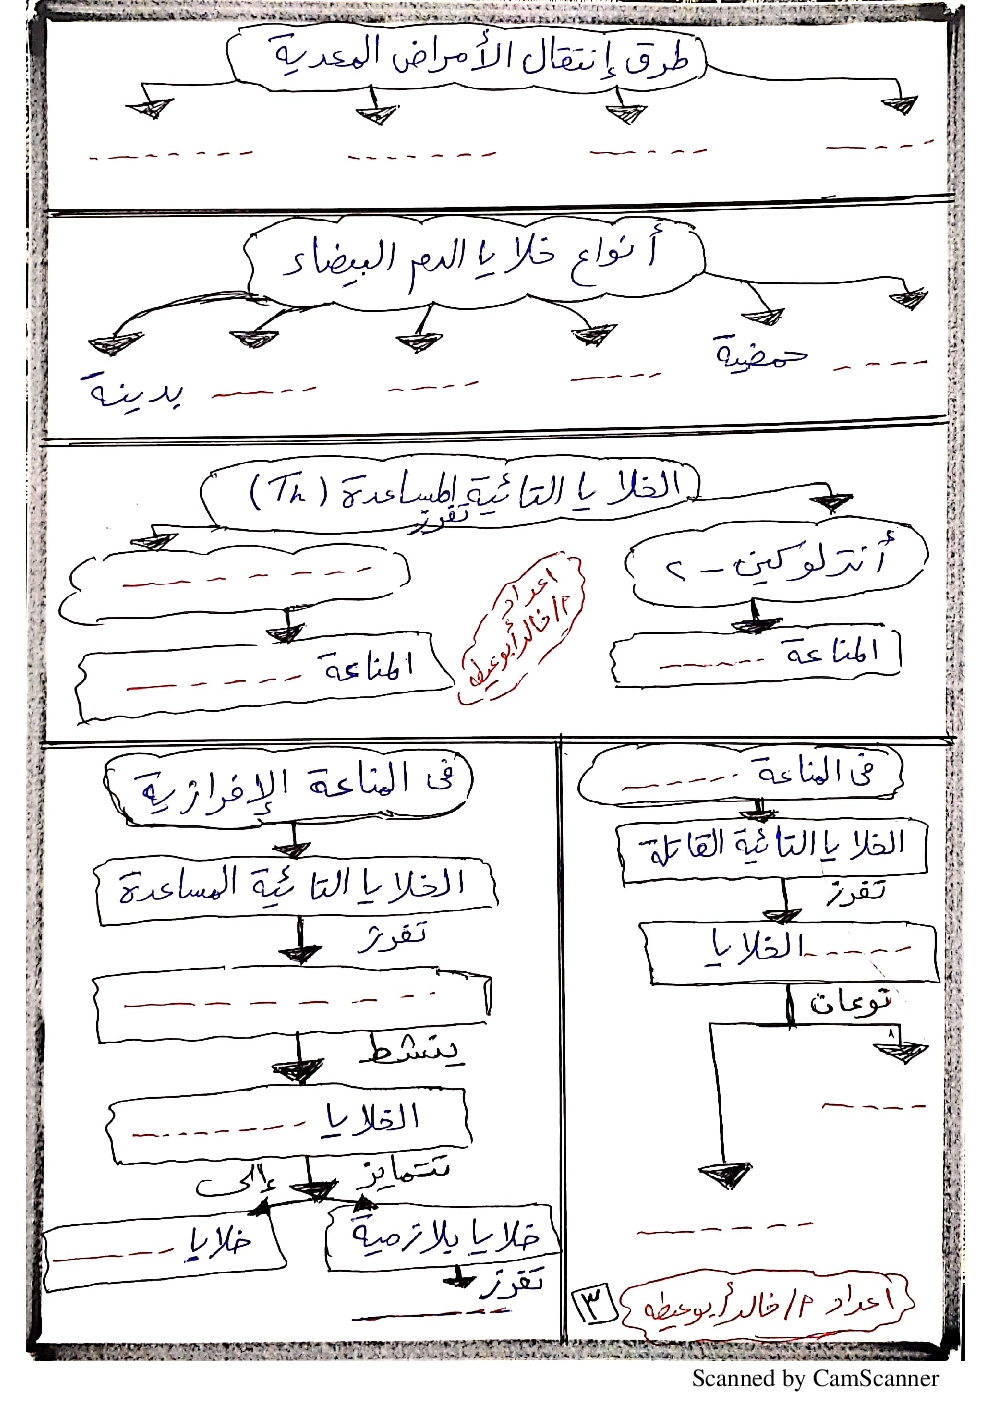 طرق إنتقال الأمراض المعدية
أنواع خلايا الدم البيضاء
حمضية
بدينة
الخلايا التائية المساعدة (Th)
تفرز
أنترلوكين - ٢
المناعة
المناعة
اعداد
م/خالد أبو عيطه
فى المناعة
الخلايا التائية القاتلة
تفرز
الخلايا
نوعان
فى المناعة الإفرازية
الخلايا التائية المساعدة
تفرز
ينشط
الخلايا
تتمايز إلى
خلايا بلازمية
خلايا
تفرز
اعداد م/خالد أبو عيطه
٣
Scanned by CamScanner